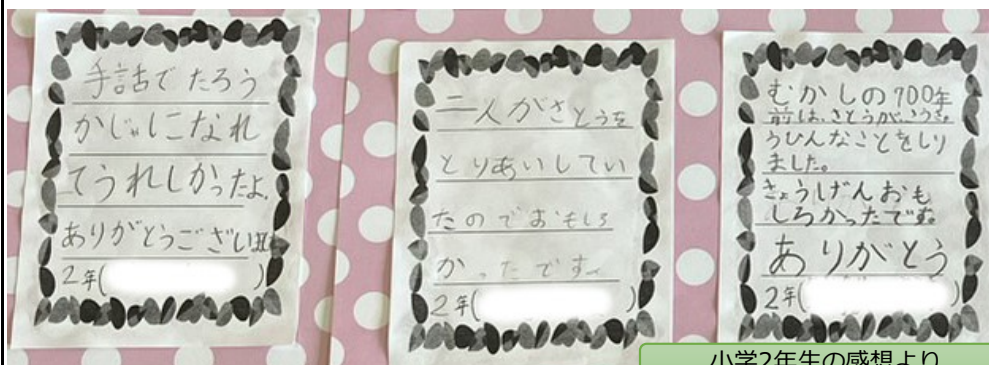 手話でたろう
かじゃになれ
てうれしかったよ。
ありがとうござい
2年( )
二人がさとうを
とりあいしてい
たのでおもしろ
かったです。
2年( )
むかしの700年
前は、さとうが、こうき
うひんなことをしり
ました。
きょうげんおも
しろかったです。
ありがとう
2年( )
小学2年生の感想より